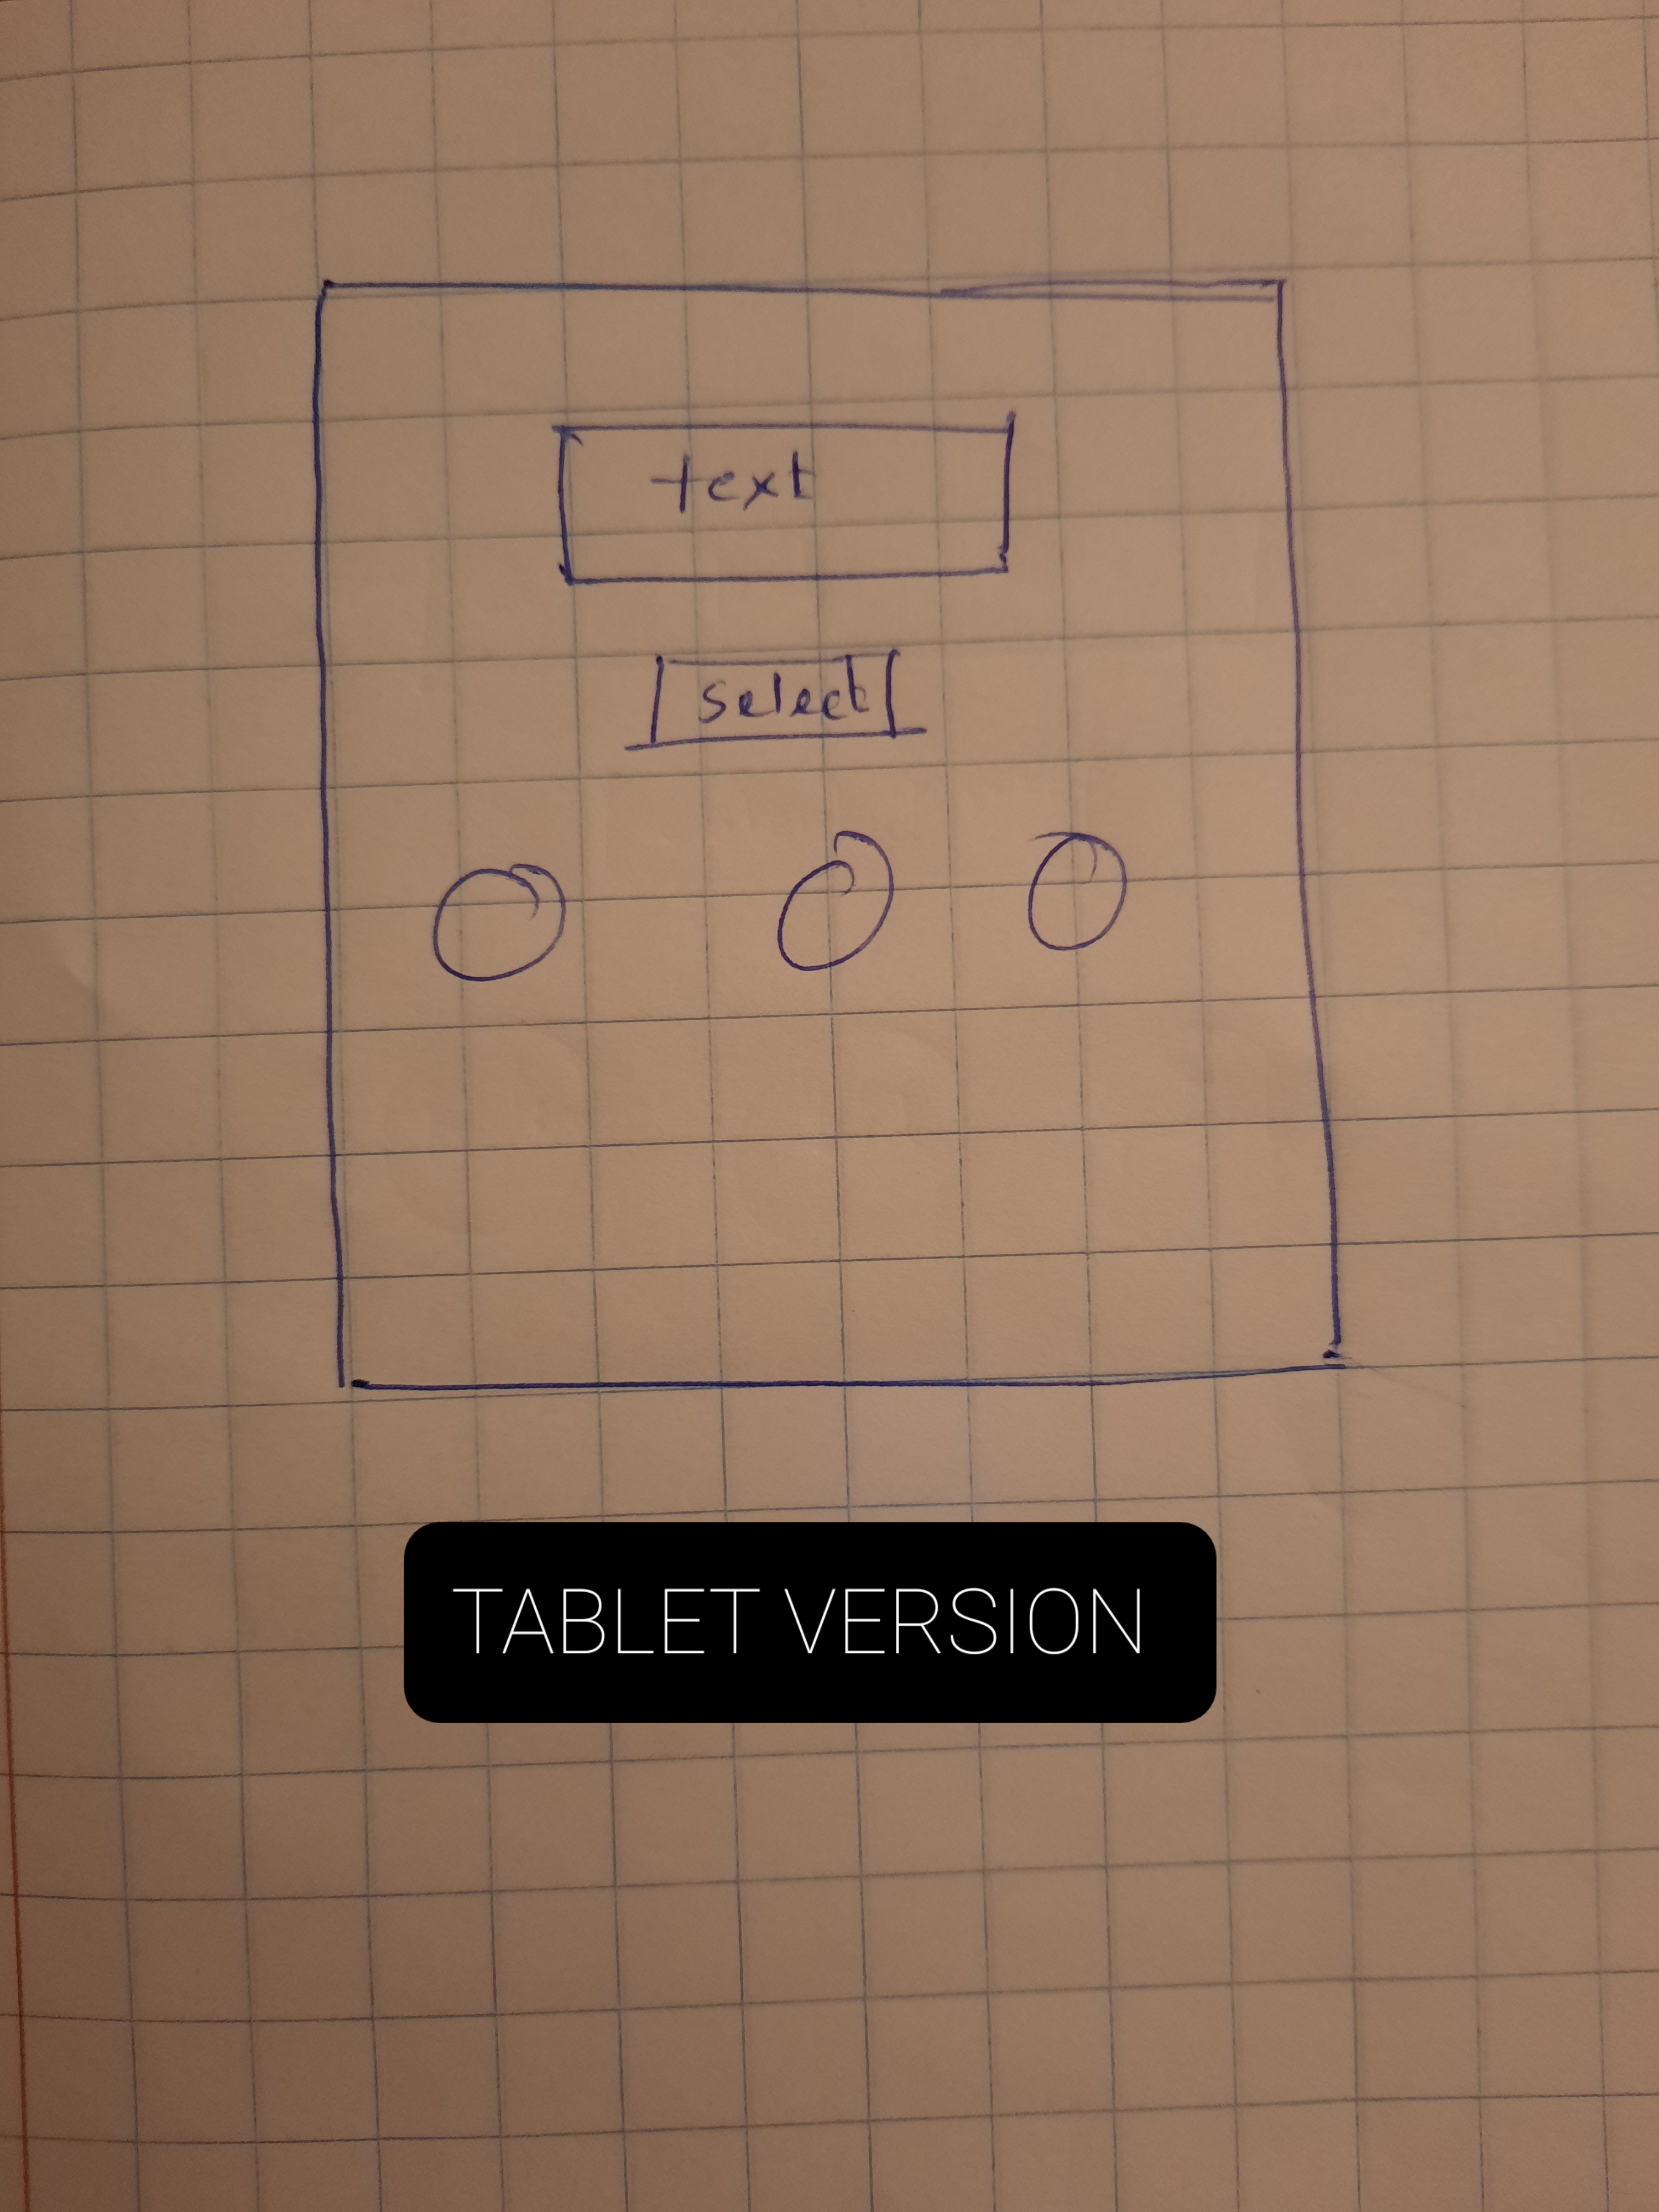 text
select
TABLET VERSION